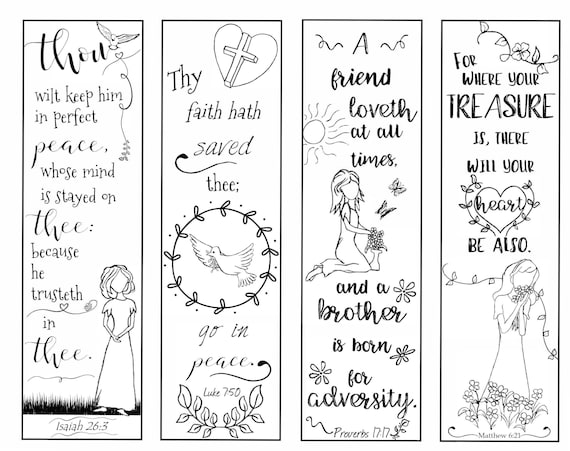 thou
wilt keep him
in perfect
peace,
whose mind
is stayed on
thee:
because
he
trusteth
in
thee.
Isaiah 26:3
Thy
faith hath
saved
thee;
go in
peace.
Luke 7:50
A
friend
loveth
at all
times,
and a
brother
is born
for
adversity.
Proverbs 17:17
FOR
WHERE YOUR
TREASURE
IS, THERE
WILL YOUR
heart
BE ALSO.
Matthew 6:21